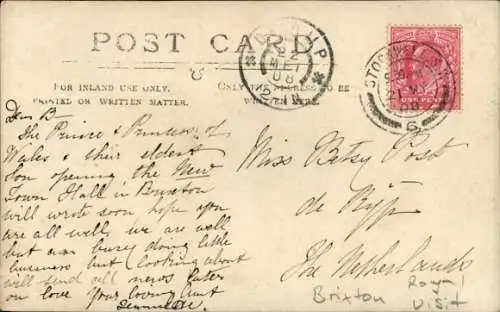 POST CARD
FOR INLAND USE ONLY.
PRINTED OR WRITTEN MATTER.
ONLY THE ADDRESS TO BE
WRITTEN HERE.
Dear B.
The Prince & Princess of
Wales & their eldest
Son opening the New
Town Hall in Brixton
will write soon hope you
are all well, we are well
but am busy doing little
business but looking about
will send all news later
on love Your loving Aunt
Miss Betsy Post
de Rijp
The Netherlands
Brixton Royal
Visit
ONE PENNY
08
S.O.